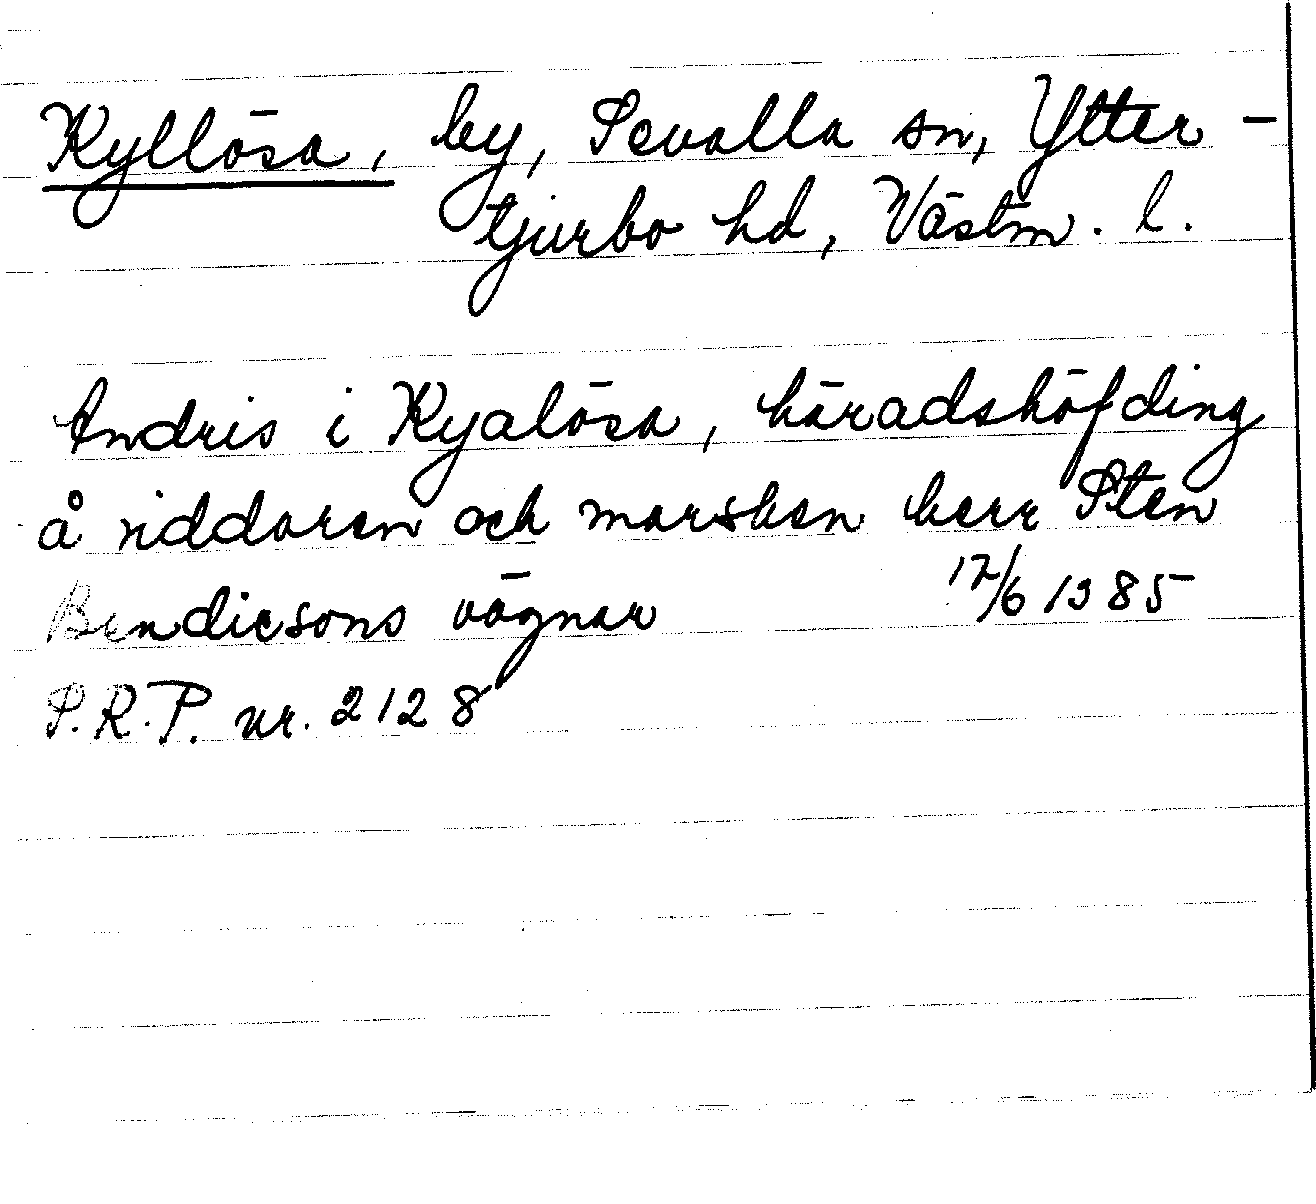 Kyllösa, by, Sevalla sn, Ytter-
tjurbo hd, Västm. l.
Andris i Kyalösa, häradshöfding
å riddaren och marsken herr Sten
Bendicsons vägnar 12/6 1385
S.R.P. nr. 2128